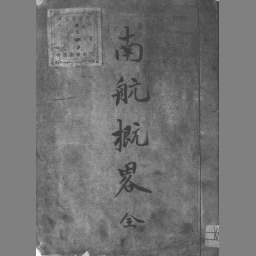 南航概畧 全